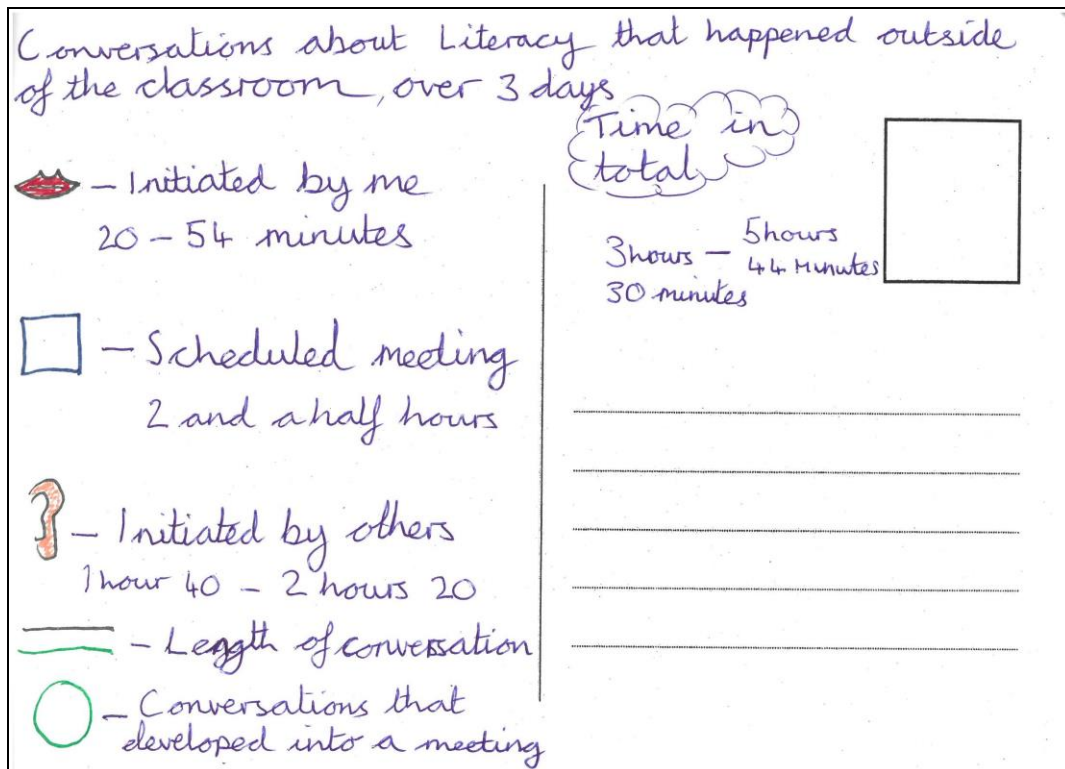 Conversations about Literacy that happened outside
of the classroom, over 3 days
– Initiated by me
20 – 54 minutes
– Scheduled meeting
2 and a half hours
– Initiated by others
1 hour 40 – 2 hours 20
– Length of conversation
– Conversations that
developed into a meeting
Time in
total
3hours – 5hours
44 Minutes
30 minutes